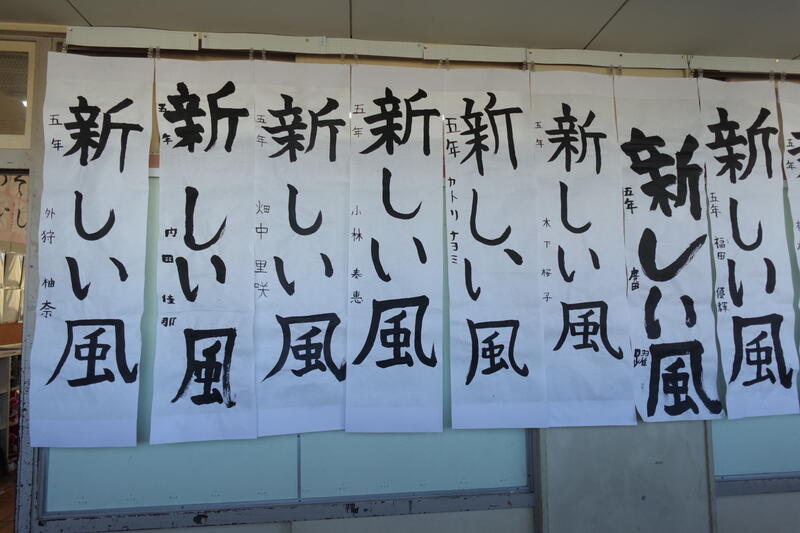 新しい風
五年
外狩 柚奈
新しい風
五年
内田佳那
新しい風
五年
畑中 里咲
新しい風
五年
小林 奏恵
新しい風
五年
カトリ ナヨミ
新しい風
五年
木下 桜子
新しい風
五年
新しい風
五年
福田 優輝